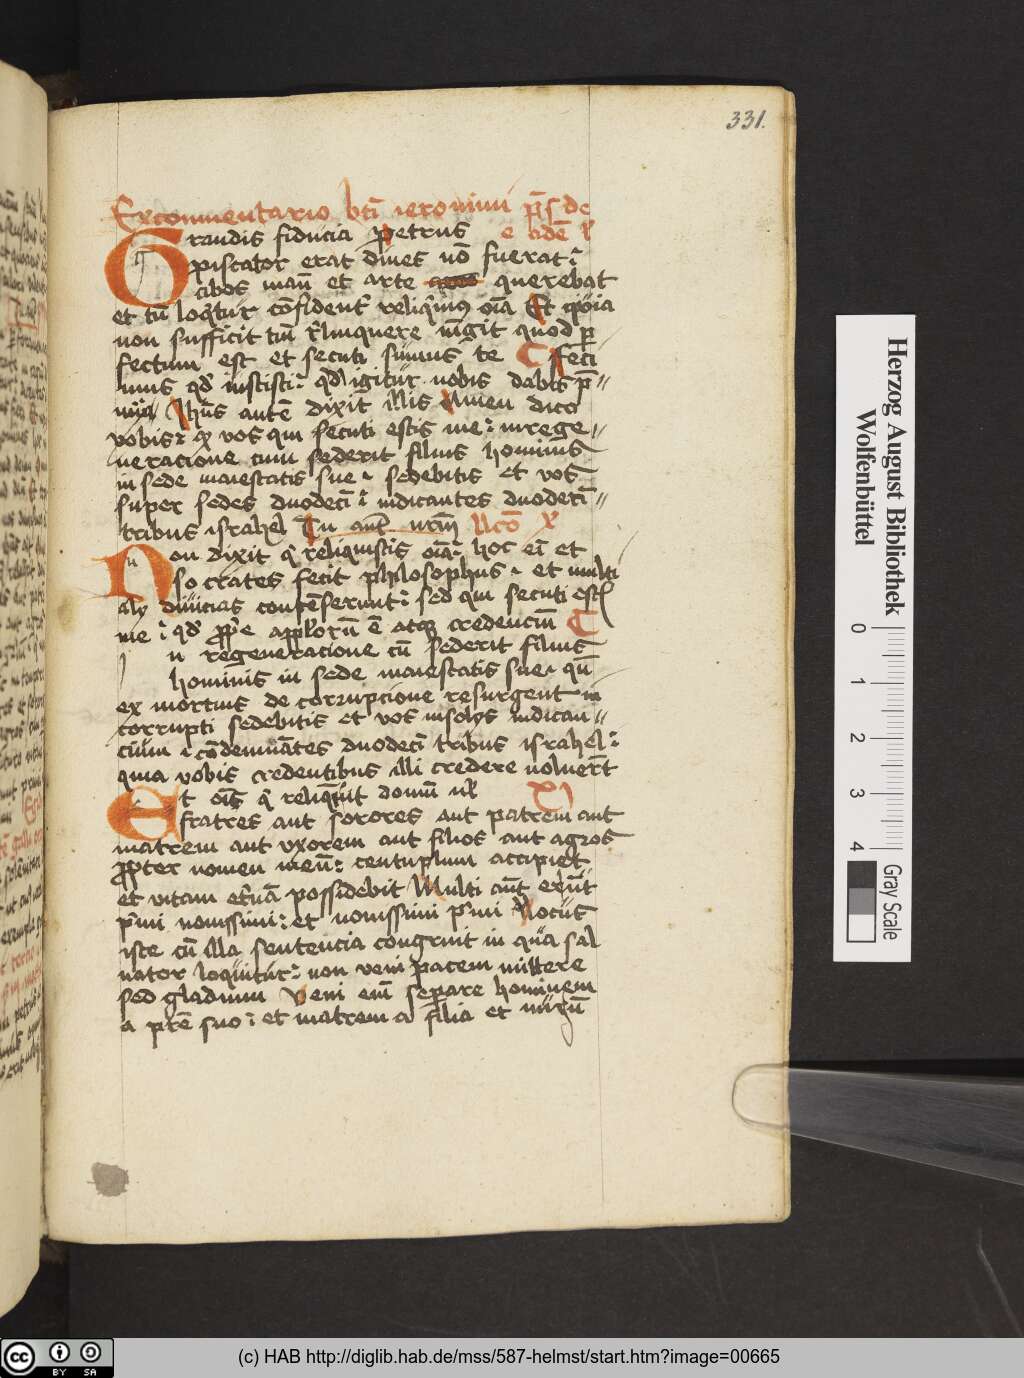 331.
Ex commentario bti ieronimi p̄s de
Grandis fiducia petrus e adē l
piscator erat diues nō fuerat
cibos manu et arte querebat
et tn̄ loqitur cōfident reliqimus oīa Et quia
non sufficit tm̄ relinquere iūgit quod per
fectum est et secuti sumus te Feci
mus qd iussisti qd igitur nobis dabis p̄
mij Ihūs autē dixit illis Amen dico
vobis qd vos qui secuti estis me in rege
neracione cum sederit filius hominis
in sede maiestatis sue sedebitis et vos
super sedes duodecī iudicantes duodecī
tribus israhel In
Non dixit q reliquistis oīa hoc eī et
socrates fecit philosophus et multi
alij diuicias contēserunt sed qui secuti estis
me qd ppe applorū ē atqz credenciū
n regeneracione cū sederit filius
hominis in sede maiestatis sue qn̄
ex mortuis de corrupcione resurgent in
corrupti sedebitis et vos in solijs iudican
cium cōdemnātes duodecī tribus israhel
quia vobis credentibus illi credere noluerūt
Et oīs q reliqerit domū ul
fratres aut sorores aut patrem aut
matrem aut vxorem aut filios aut agros
ppter nomen meū centuplum accipiet
et vitam etnā possidebit Multi aūt erūt
pmi nouissimi et nouissimi pmi Locus
iste cū illa sentencia congruit in qua sal
uator loquitur non veni pacem mittere
sed gladium Veni enī separare hominem
a pre suo et matrem a filia et nurū
Herzog August Bibliothek
Wolfenbüttel
0 1 2 3 4
Gray Scale
cc BY SA
(c) HAB http://diglib.hab.de/mss/587-helmst/start.htm?image=00665